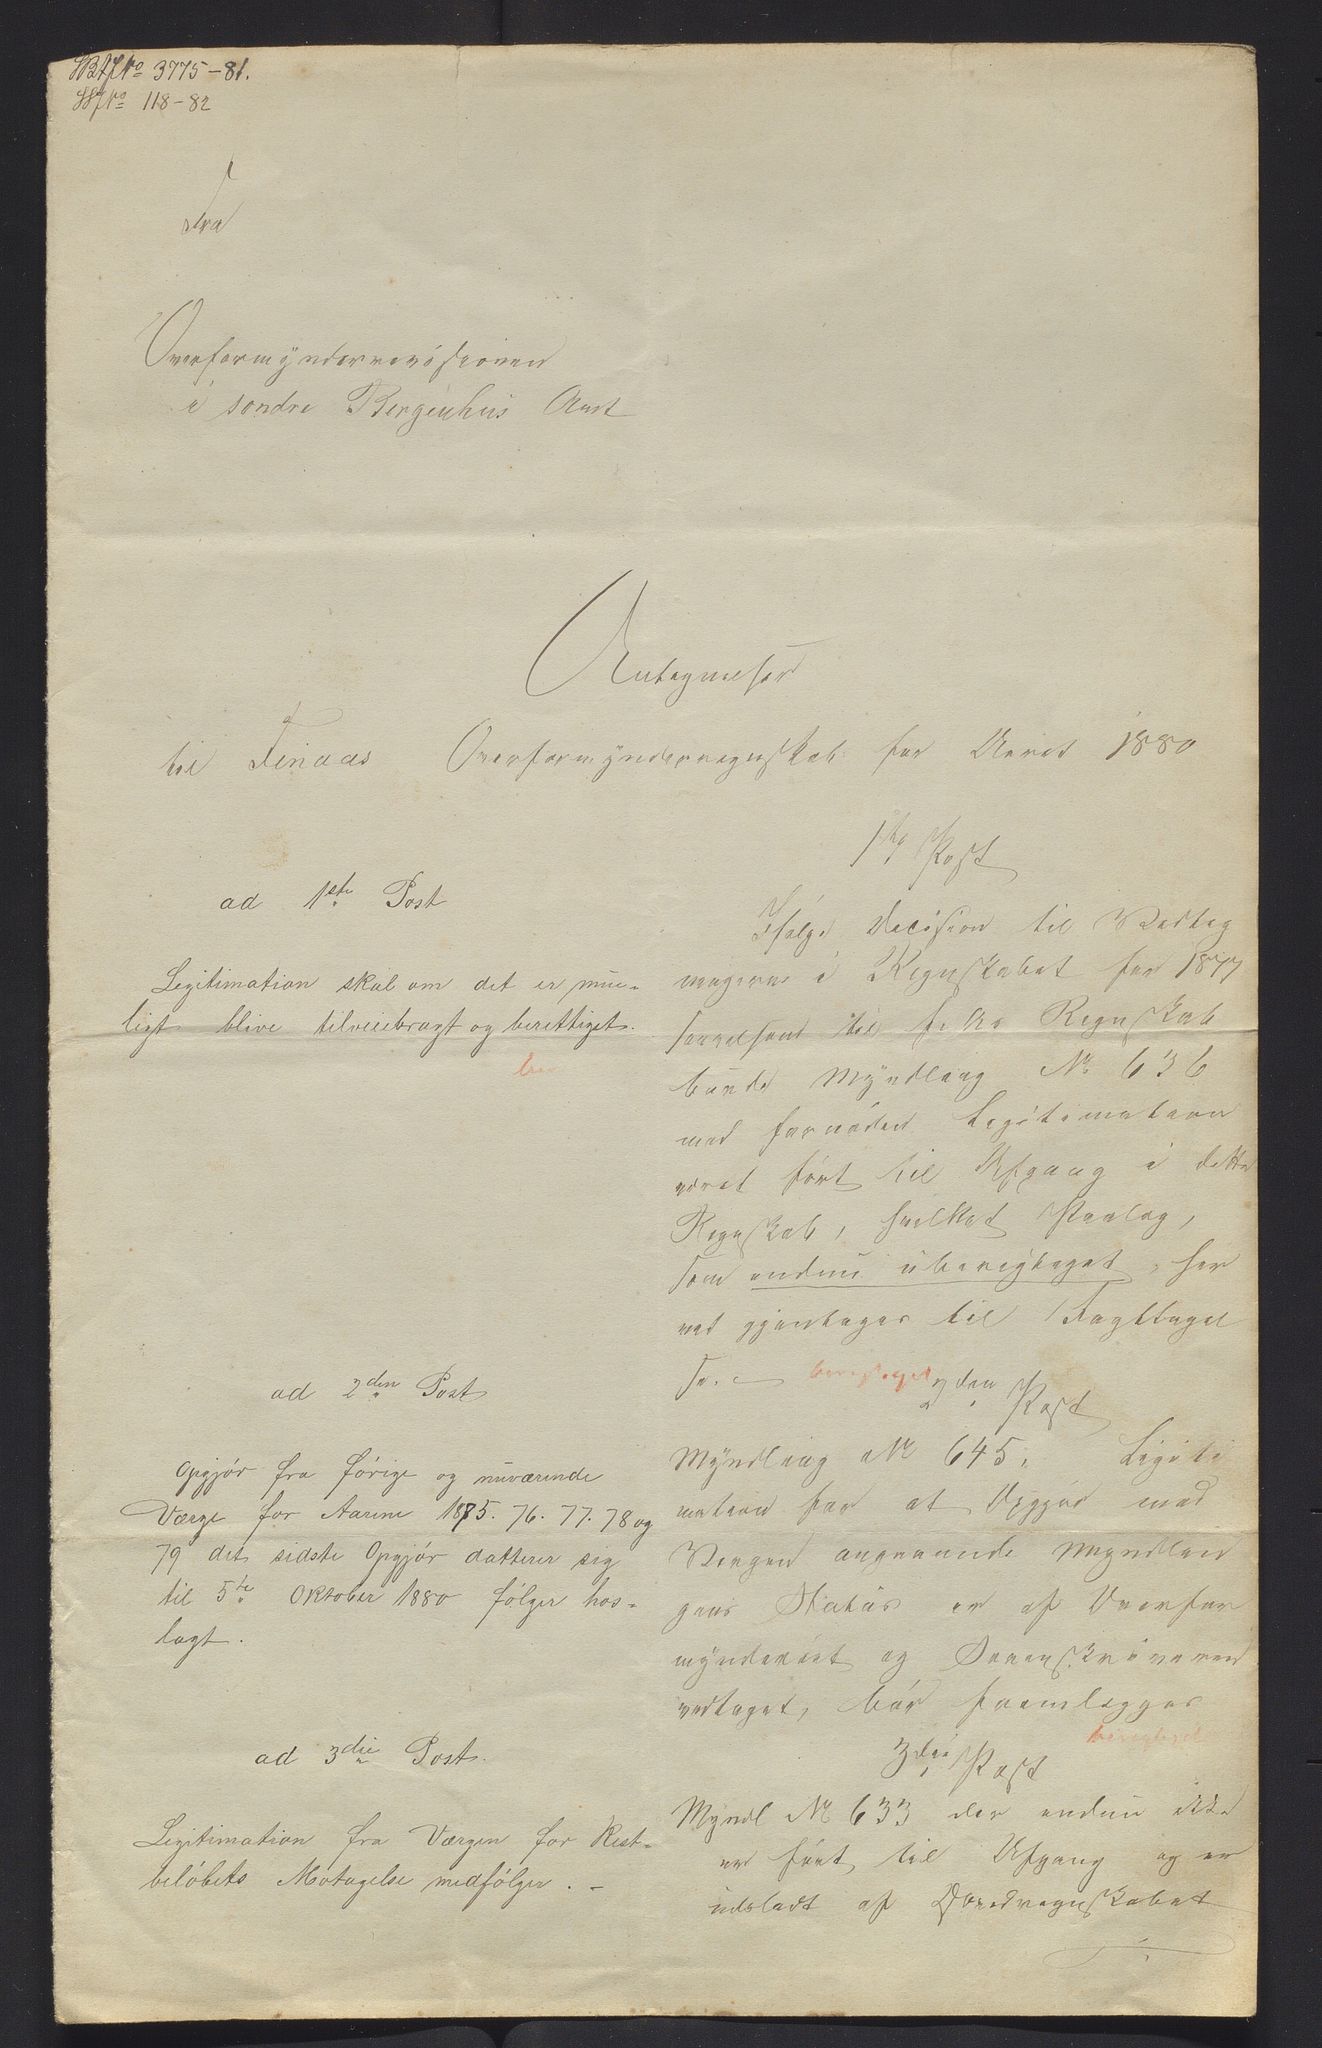 SBAJNo 3775-81.
SSJNo 118-82
Fra
Overformynderrevisionen
i søndre Bergenhus Amt
Antegnelser
til Finaas Overformynderregnskab for Aaret 1880
ad 1ste Post
Legitimation skal om det er mue-
ligt blive tilveiebragt og berettiget.
ad 2den Post
Opgjör fra förige og nuværende
Værge for Aarene 1875. 76. 77. 78 og
79 det sidste Opgjör datterer sig
til 5te Oktober 1880 fölger hos-
lagt.
ad 3die Post.
Legitimation fra Værgen for Rest-
belöbets Modtagelse medfölger. -
1ste Post
Ifølge Decision til
i Regnskabet for 1877
til Regnskab
burde Myndling No 636
med fornöden Legitimation
været fört til Afgang i dette
Regnskab, hvilket Paalæg,
som endnu uberigtiget, her
ved gjentages til Iagttagel
se. berigtiget
2den Post
Myndling No 645. Legiti
mation for at Opgjör med
Værgen angaaende Myndlin
gens Status er af Overfor
mynderiet og Sorenskriveren
vedtaget, bör fremlægges
berigtiget
3die Post
Myndl No 633 der endnu ikke
er fört til Afgang og er
udeladt af Hovedregnskabet